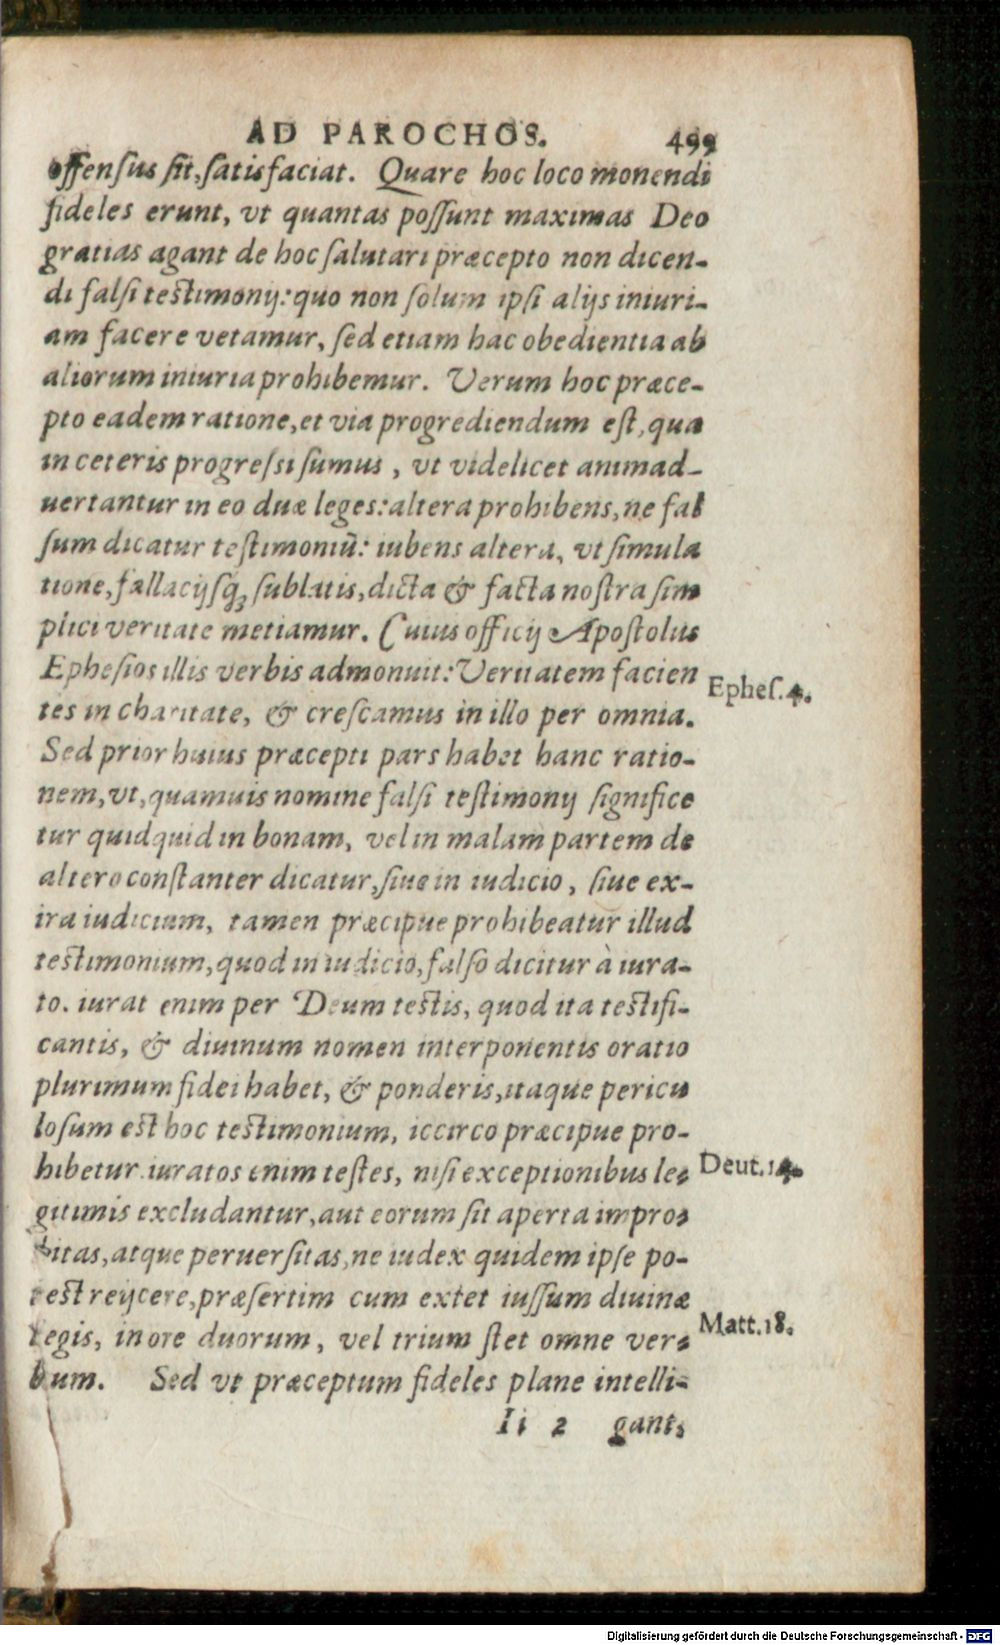 AD PAROCHOS. 499
offensus sit, satisfaciat. Quare hoc loco monendi
fideles erunt, vt quantas possunt maximas Deo
gratias agant de hoc salutari præcepto non dicen-
di falsi testimonij: quo non solum ipsi alijs iniuri-
am facere vetamur, sed etiam hac obedientia ab
aliorum iniuria prohibemur. Verum hoc præce-
pto eadem ratione, et via progrediendum est, qua
in ceteris progressi sumus, vt videlicet animad-
uertantur in eo duæ leges: altera prohibens, ne fal
sum dicatur testimoniū: iubens altera, vt simula
tione, fallacijsq́; sublatis, dicta & facta nostra sim
plici veritate metiamur. Cuius officij Apostolus
Ephesios illis verbis admonuit: Veritatem facien
Ephes. 4.
tes in charitate, & crescamus in illo per omnia.
Sed prior huius præcepti pars habet hanc ratio-
nem, vt, quamuis nomine falsi testimonij significe
tur quidquid in bonam, vel in malam partem de
altero constanter dicatur, siue in iudicio, siue ex-
tra iudicium, tamen præcipue prohibeatur illud
testimonium, quod in iudicio, falsò dicitur à iura-
to. iurat enim per Deum testis, quod ita testifi-
cantis, & diuinum nomen interponentis oratio
plurimum fidei habet, & ponderis, itaque pericu
losum est hoc testimonium, iccirco præcipue pro-
hibetur. iuratos enim testes, nisi exceptionibus le-
Deut. 19.
gitimis excludantur, aut eorum sit aperta impro-
bitas, atque peruersitas, ne iudex quidem ipse po-
test reijcere, præsertim cum extet iussum diuinæ
legis, in ore duorum, vel trium stet omne ver-
Matt. 18.
bum. Sed vt præceptum fideles plane intelli-
Ii 2 gant,
Digitalisierung gefördert durch die Deutsche Forschungsgemeinschaft - DFG